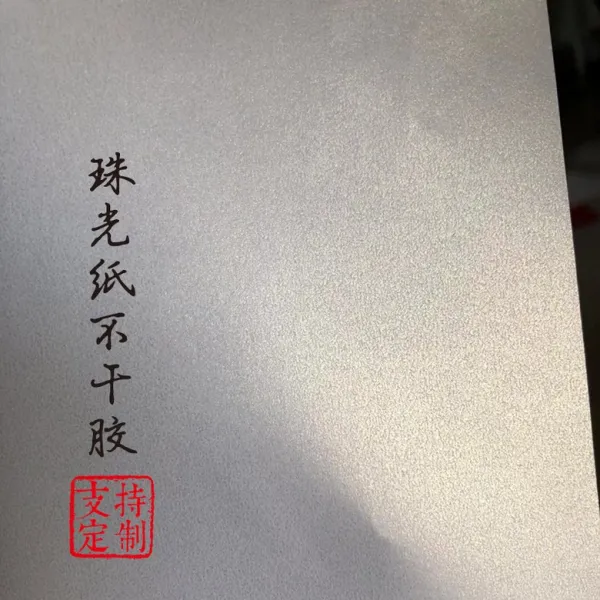 珠光纸不干胶
支持
定制